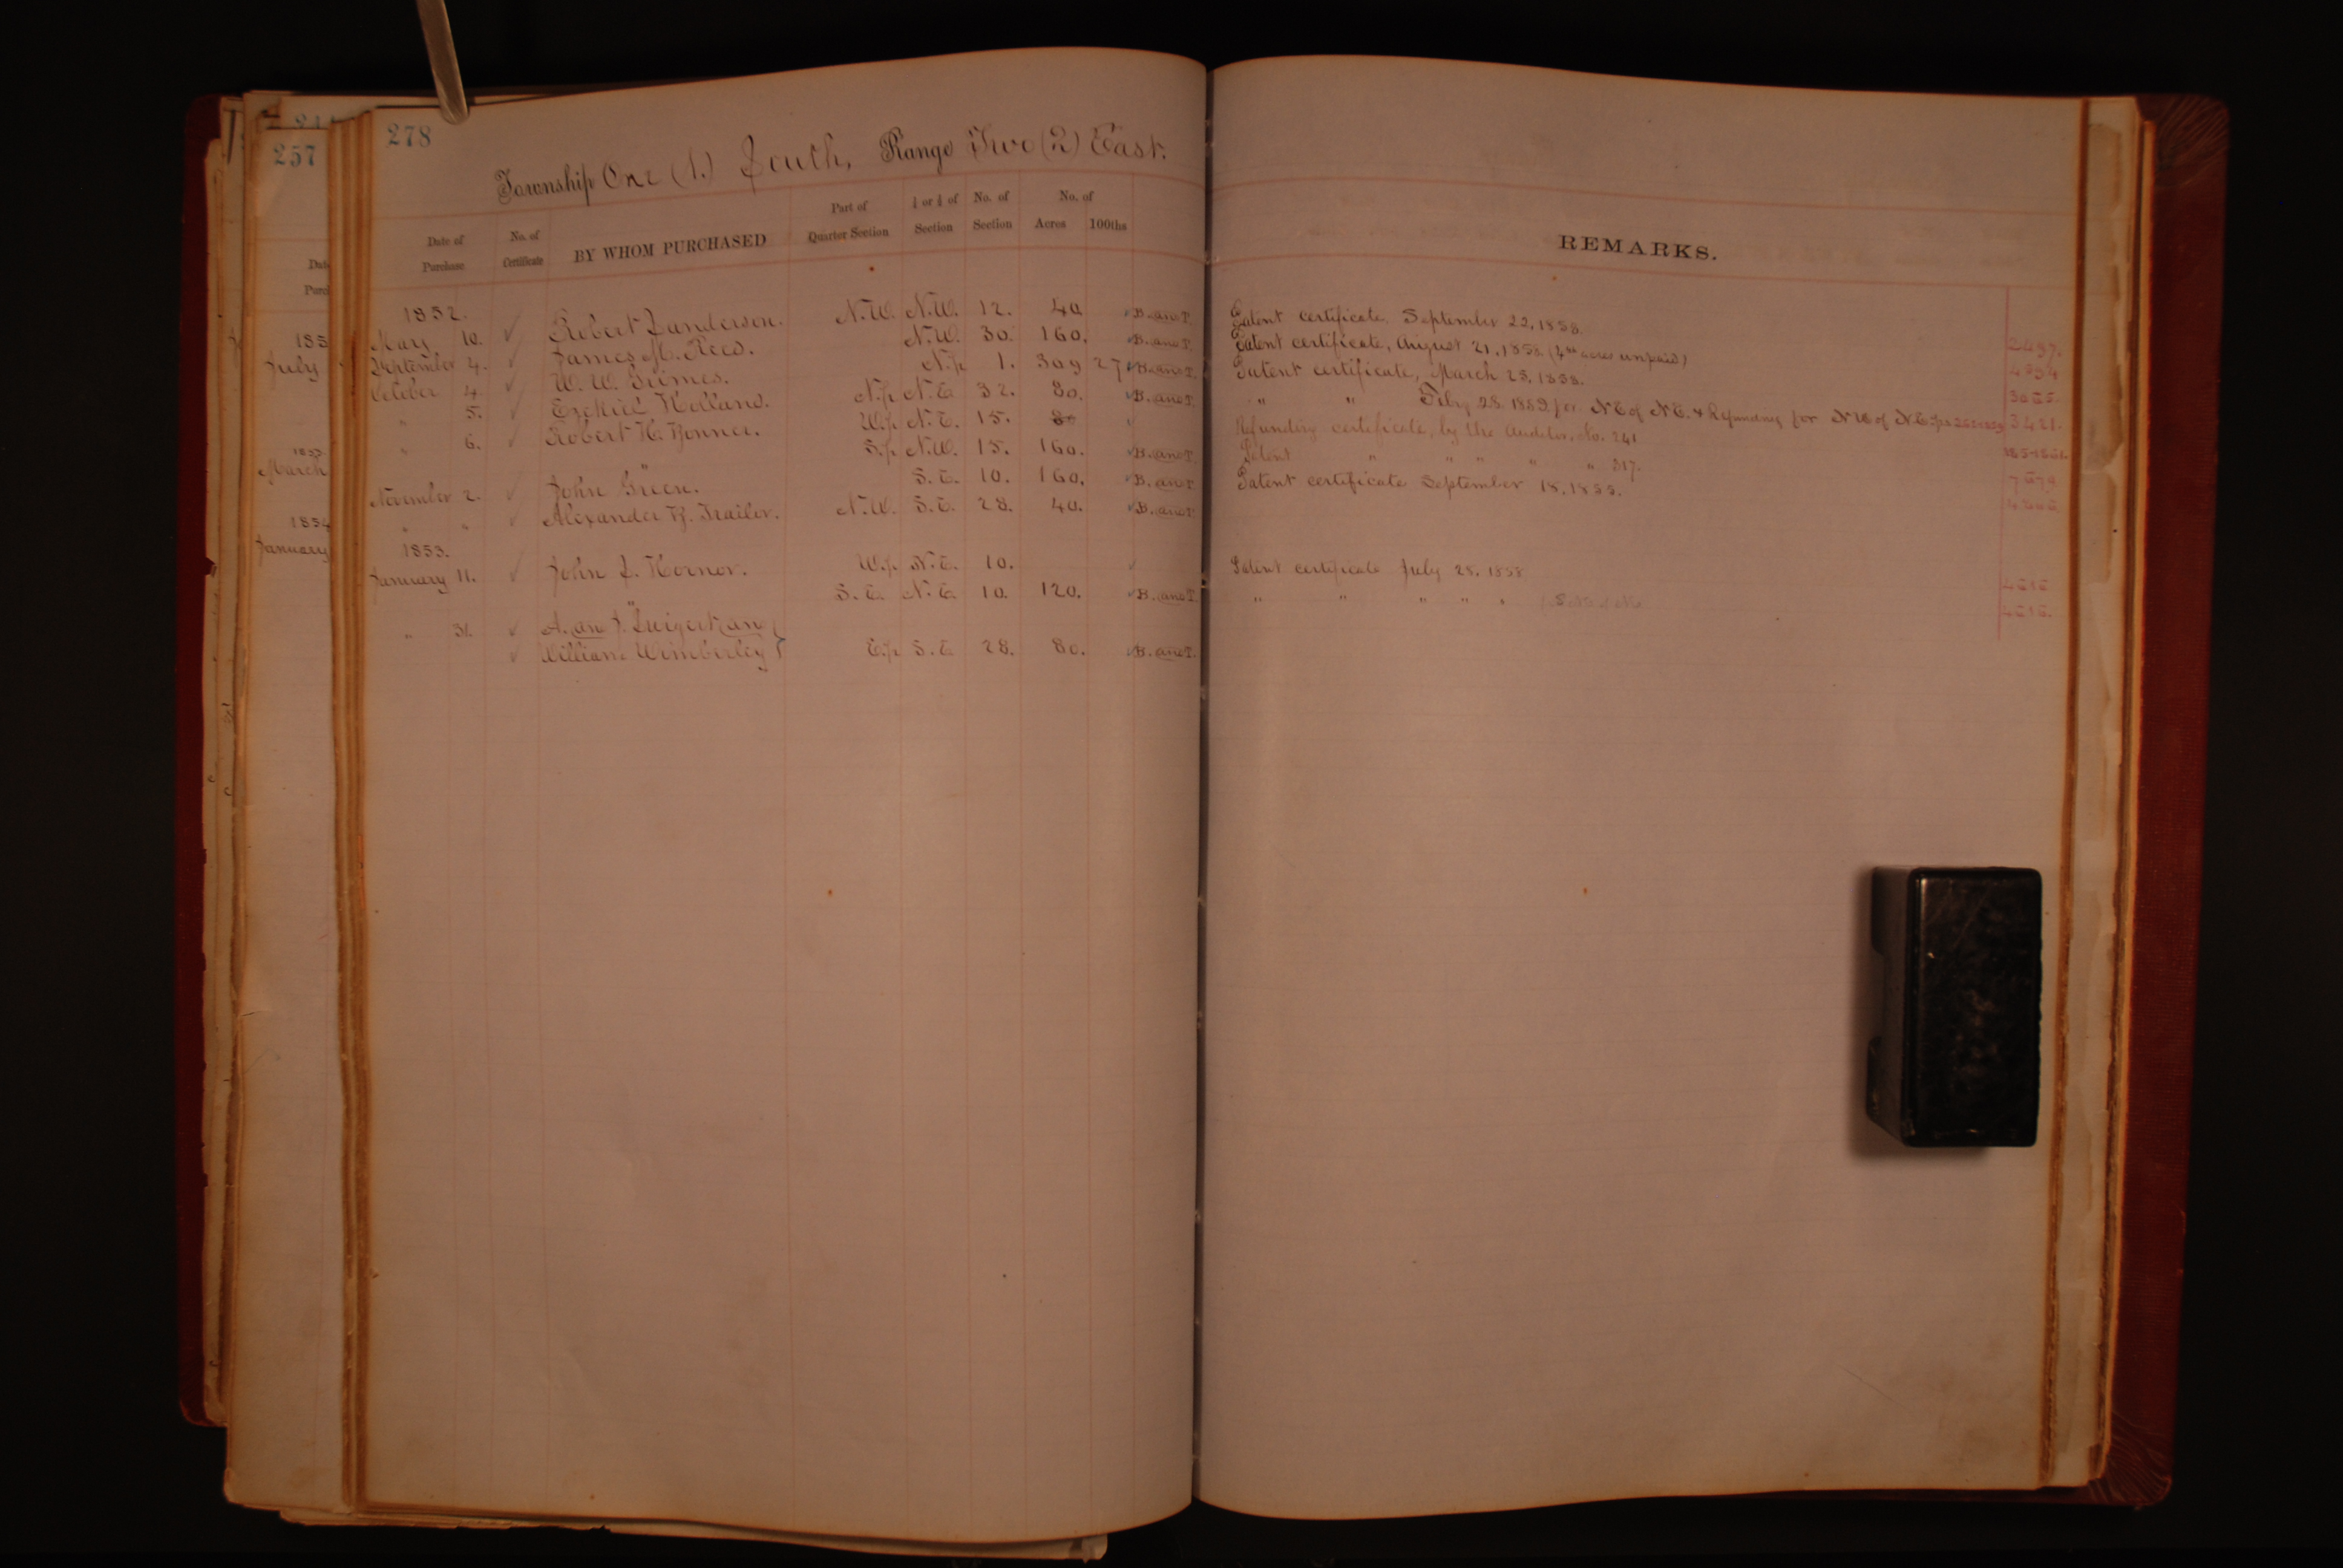 278
257
Township One (1.) South, Range Two (2) East.
Date of Purchase No. of Certificate BY WHOM PURCHASED Part of Quarter Section ½ or ¼ of Section No. of Section No. of Acres 100ths
REMARKS.
1852.
May 10. Robert Sanderson. N.W. N.W. 12. 40 B. and T. Patent certificate, September 22, 1858.
September 4. James M. Reed. N.W. 30. 160. B. and T. Patent certificate, August 21, 1858 (acres unpaid)
October 4. W. W. Grimes. N.½ 1. 309 27 B. and T. Patent certificate, March 25, 1858.
" 5. Ezekiel Holland. N.½ N.E. 32. 80. B. and T. " " Feby 28. 1889. for NE of NE. & Refunding for NW of N.E. 3421.
" 6. Robert H. Bonner. W.½ N.E. 15. 80 Refunding certificate, by the Auditor, No. 241
" S.½ N.W. 15. 160. B. and T. Patent " " " " " 317.
November 2. John Green. S.E. 10. 160. B. and T. Patent certificate September 18, 1855.
" " Alexander B. Trailor. N.W. S.E. 28. 40. B. and T.
1853.
January 11. John L. Hornor. W.½ N.E. 10. Patent certificate July 28, 1858
" S.E. N.E. 10. 120. B. and T. " " " " "
" 31. A. and J. and
William Wimberley E.½ S.E. 28. 80. B. and T.
July
March
January